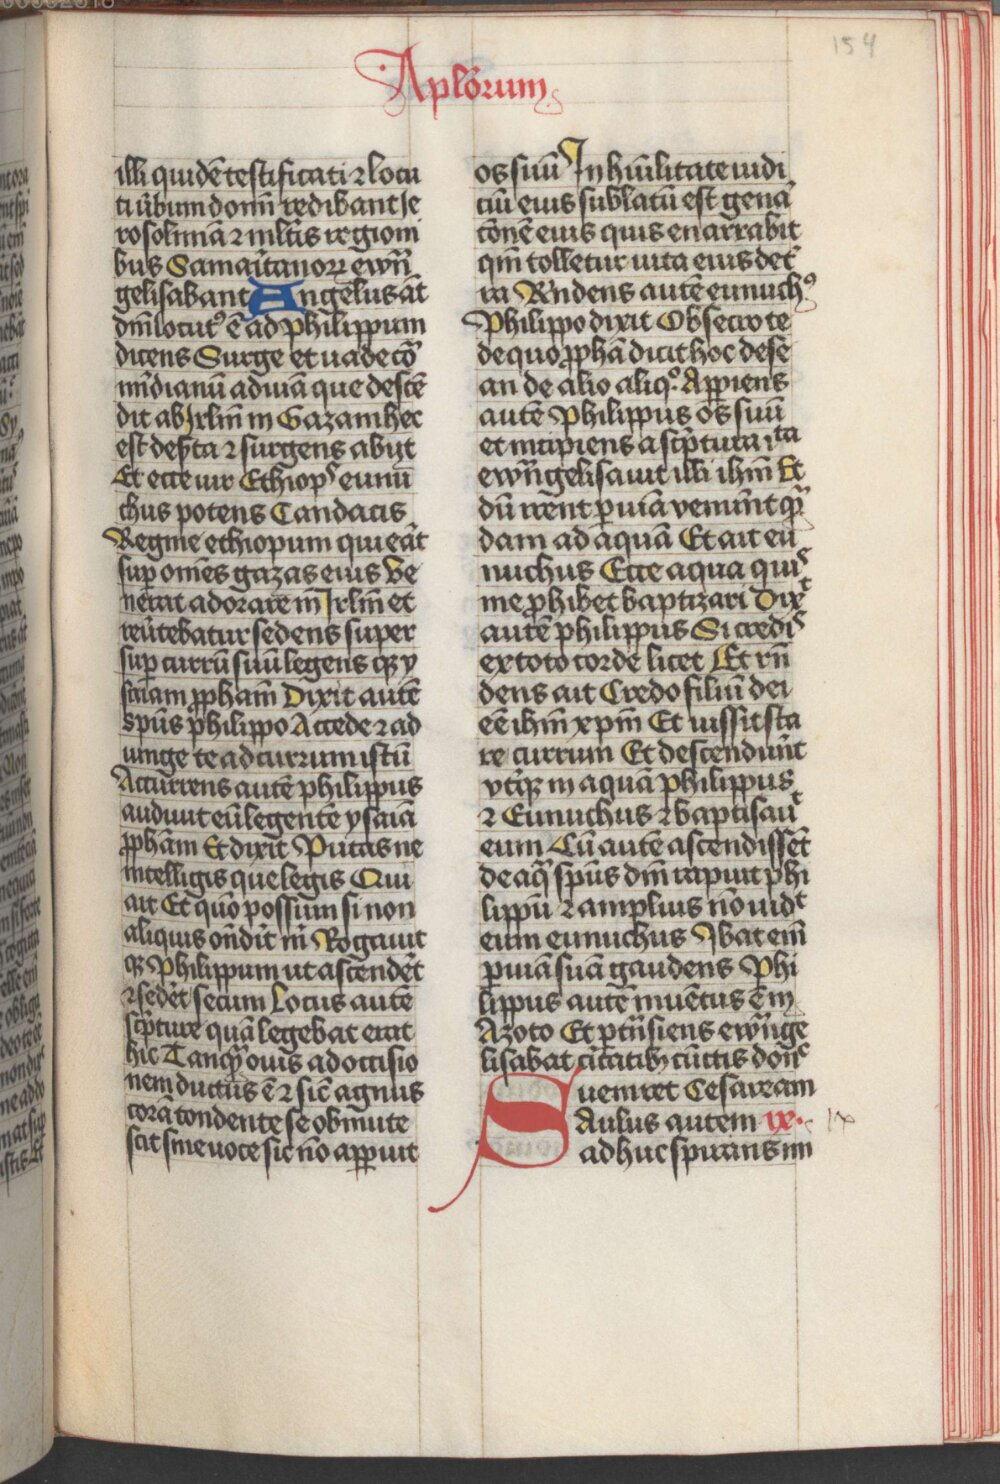 154
Aplōrum
illi quidē testificati ⁊ locu
ti v̄bum domī redibant Je
rosolimā ⁊ mltis regioni
bus Samaritanorꝝ ewn̄
gelisabant Angelus āt
dm̄ locutꝰ ē ad philippum
dicens Surge et uade cō
mīdianū ad viā que descē
dit ab Jrlm̄ in Gazam hec
est des̄ta ⁊ surgens abijt
Et ecce uir Ethiops eunu
chus potens Candacis
Regine ethiopum qui eāt
sup om̄es gazas eius Ve
nerat adorare in Jrlm̄ et
reūtebatur sedens super
sup currū suū legens qꝫ y
saiam ꝓpham̄ Dixit autē
spūs philippo Accede ⁊ ad
iunge te ad currum istū
Accurrens autē philippus
audiuit eū legentē ysaiā
ꝓpham̄ Et dixit Putas ne
intelligis que legis Qui
ait Et quō possum si non
aliquis on̄dit m̄ Rogauit
qꝫ Philippum ut ascendēt
⁊ sedēt secum Locus autē
sc̄pture quā legebat erat
hic Tanqꝫ ouis ad occisio
nem ductus ē ⁊ sic̄ agnus
corā tondente se obmute
scit sine uoce sic nō appuit
os suū In hūilitate iudi
ciū eius sublatū est gena
c̄onē eius quis enarrabit
qm̄ tolletur uita eius de t̄
ra Rn̄dens autē eunuchꝰ
Philippo dixit Obsecro te
de quo ꝓphā dicit hoc de se
an de alio aliqͦ Apꝑiens
autē Philippus os suū
et incipiens a sc̄ptura ista
ewn̄gelisauit illi ihm̄ Et
dū irent ꝑ uiā venīnt qͣn
dam ad aquā Et ait eu
nuchus Ecce aqua quis
me ꝓhibet baptizari Dixt
autē philippus Si credis
ex toto corde licet Et rn̄
dens ait Credo filiū dei
eē ihm̄ xpm̄ Et iussit sta
re currum Et descendūnt
vtqꝫ in aquā philippus
⁊ Eunuchus ⁊ baptisaut
eum Cū autē ascendissēt
de aq̄ spūs dm̄ rapuit phi
lippū ⁊ amplius nō uidt
eum eunuchus Ibat em̄
ꝑ uiā suā gaudens Phi
lippus autē inuētus ē in
Azoto Et ꝑtn̄siens ewn̄ge
lisabat ciūtatibꝫ cūctis donc
ueniret Cesaream
SAulus autem ix. ix
adhuc spirans mi